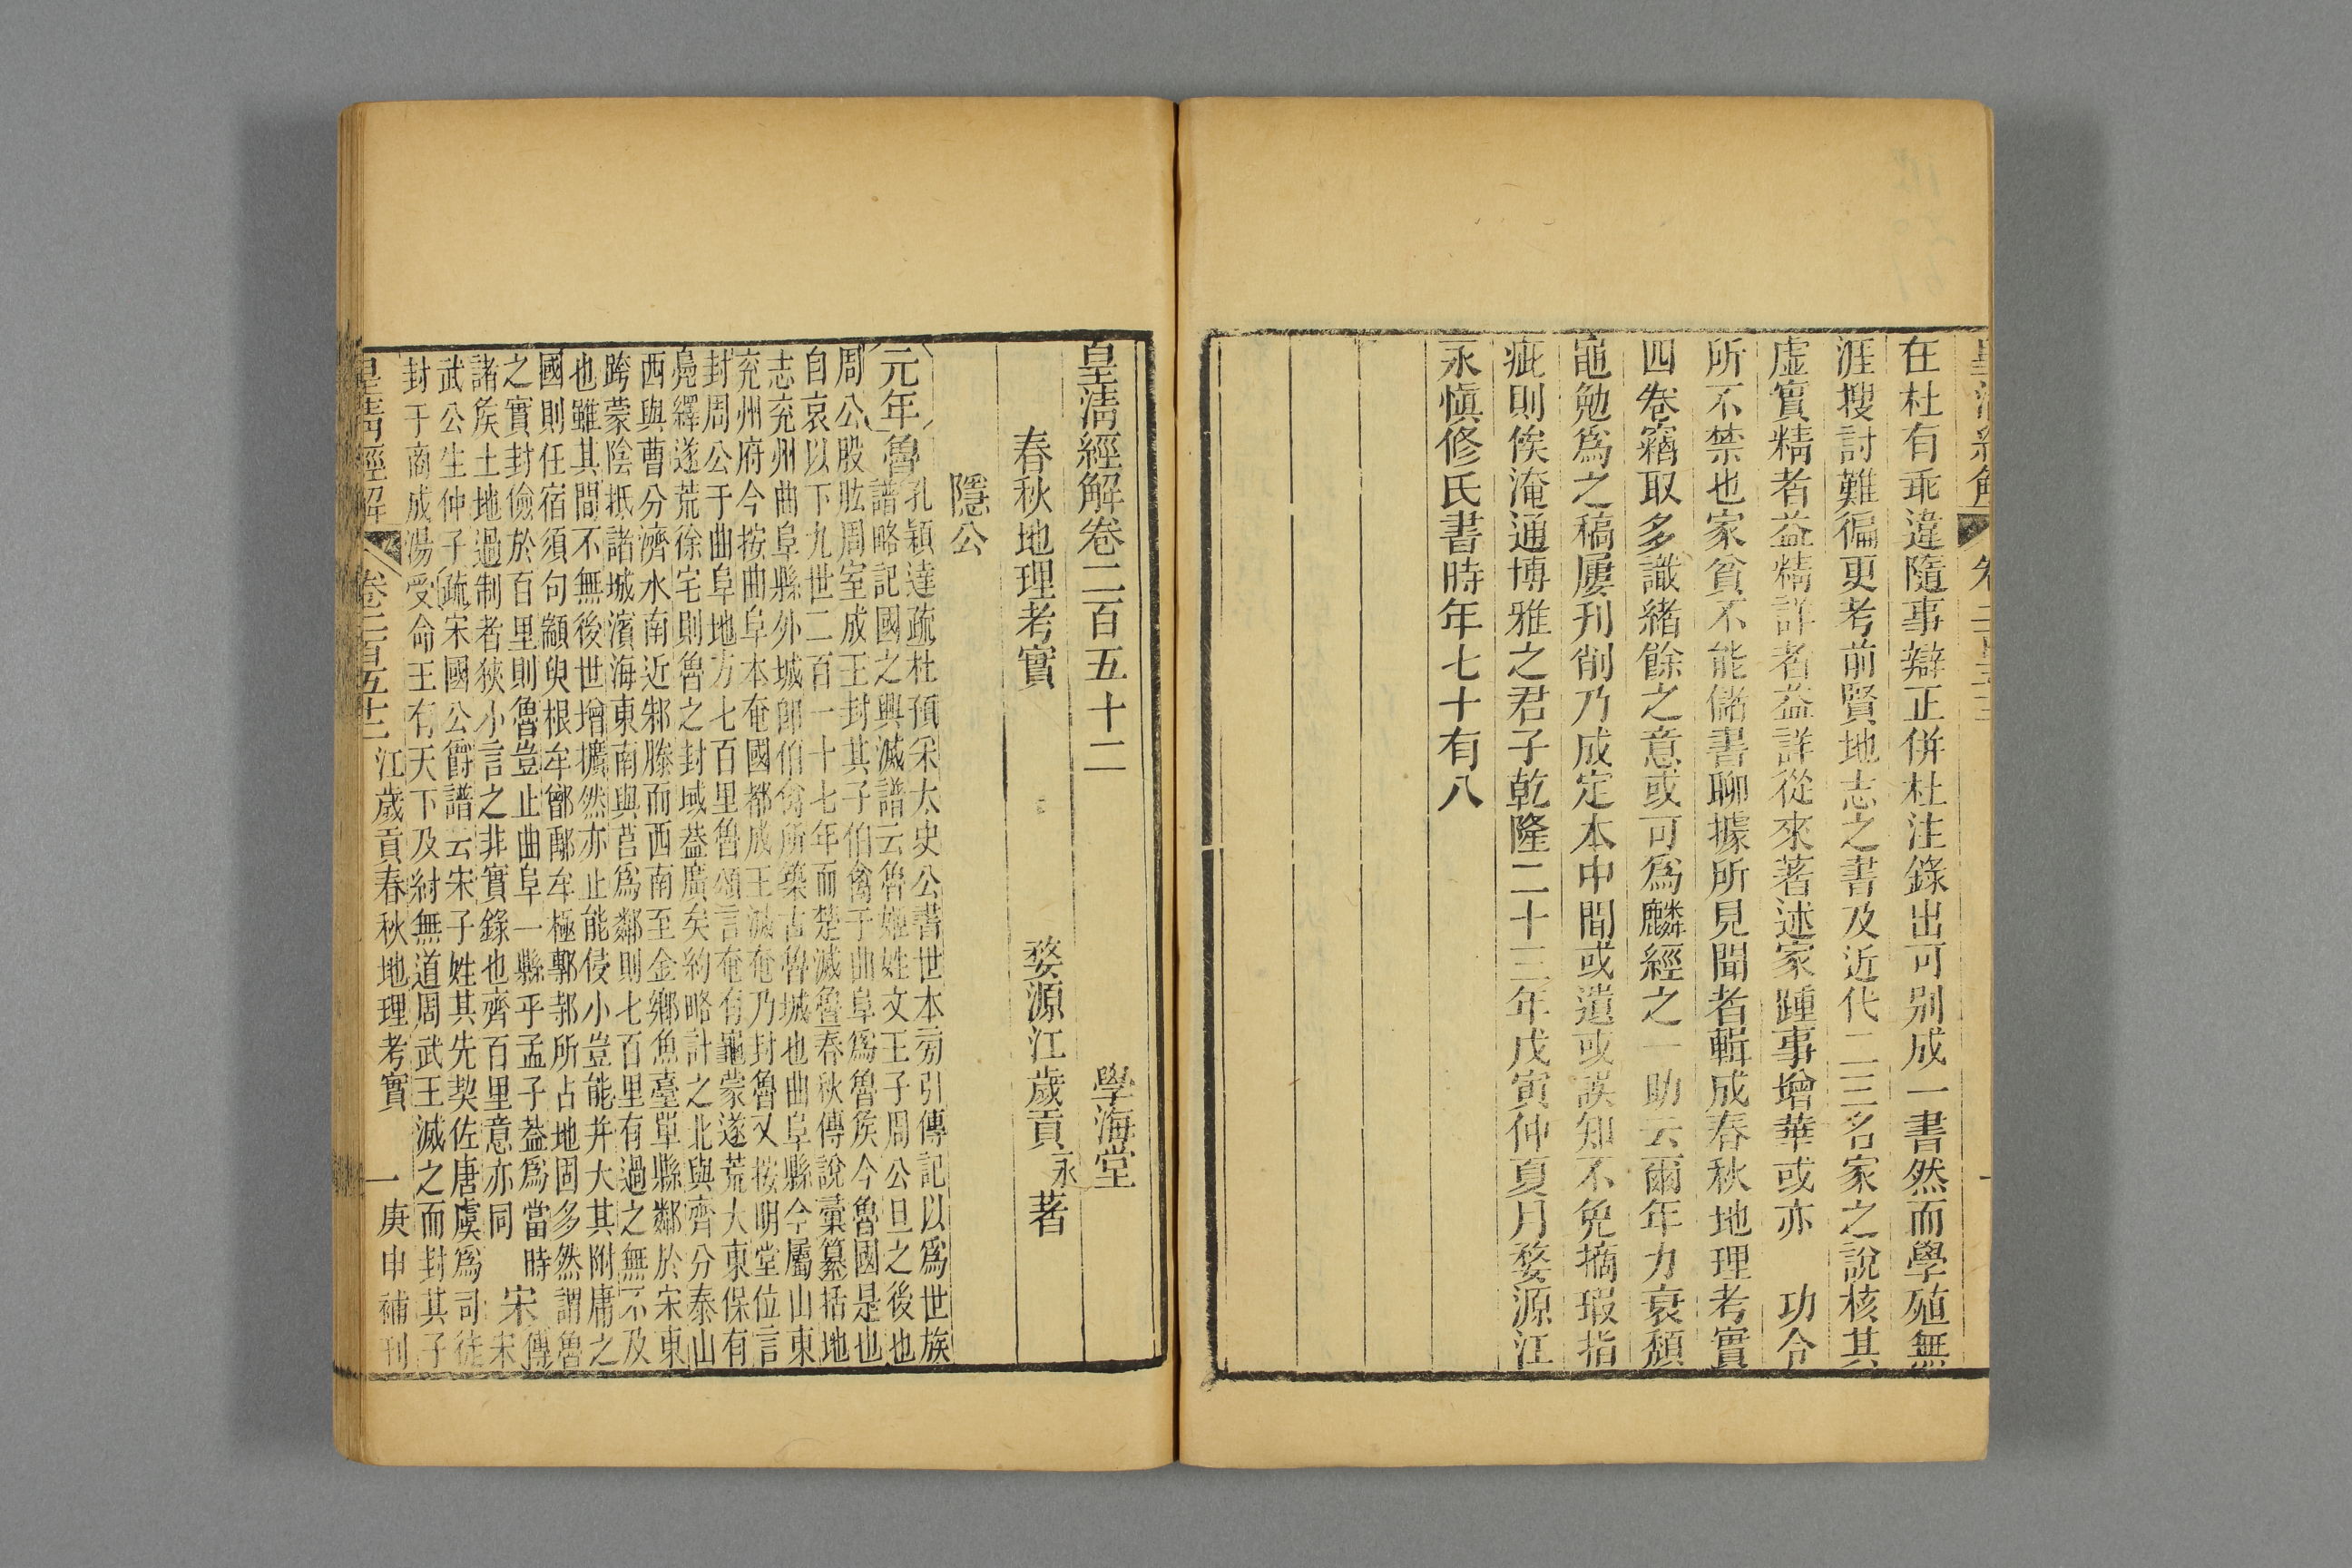 在杜有乖違隨事辯正併杜注錄出可别成一書然而學殖無
涯搜討難徧更考前賢地志之書及近代二三名家之說核其
虛實精者益精詳者益詳從來著述家踵事增華或亦 功令
所不禁也家貧不能儲書聊據所見聞者輯成春秋地理考實
四卷竊取多識緒餘之意或可爲麟經之一助云爾年力衰頹
黽勉爲之稿屢刊削乃成定本中間或遺或誤知不免摘瑕指
疵則俟淹通博雅之君子乾隆二十三年戊寅仲夏月婺源江
永愼修氏書時年七十有八
皇淸經解卷二百五十二 學海堂
春秋地理考實 婺源江歲貢永著
隱公
元年魯
孔穎達疏杜預采太史公書世本旁引傳記以爲世族
譜略記國之興滅譜云魯姬姓文王子周公旦之後也
周公股肱周室成王封其子伯禽于曲阜爲魯侯今魯國是也
自哀以下九世二百一十七年而楚滅魯春秋傳說彙纂括地
志兖州曲阜縣外城卽伯禽所築古魯城也曲阜縣今屬山東
兖州府今按曲阜本奄國都成王滅奄乃封魯又按明堂位言
封周公于曲阜地方七百里魯頌言奄有龜蒙遂荒大東保有
鳧繹遂荒徐宅則魯之封域葢廣矣約略計之北與齊分泰山
西與曹分濟水南近邾滕而西南至金鄉魚臺單縣鄰於宋東
跨蒙陰抵諸城濱海東南與莒爲鄰則七百里有過之無不及
也雖其間不無後世增擴然亦止能侵小豈能并大其附庸之
國則任宿須句顓臾根牟鄫鄅牟極鄟邿所占地固多然謂魯
之實封儉於百里則魯豈止曲阜一縣乎孟子葢爲當時
諸侯土地過制者狹小言之非實錄也齊百里意亦同
宋
傳
宋
武公生仲子疏宋國公爵譜云宋子姓其先契佐唐虞爲司徒
封于商成湯受命王有天下及紂無道周武王滅之而封其子
皇淸經解 卷二百五十二 江歲貢春秋地理考實 一 庚申補刊